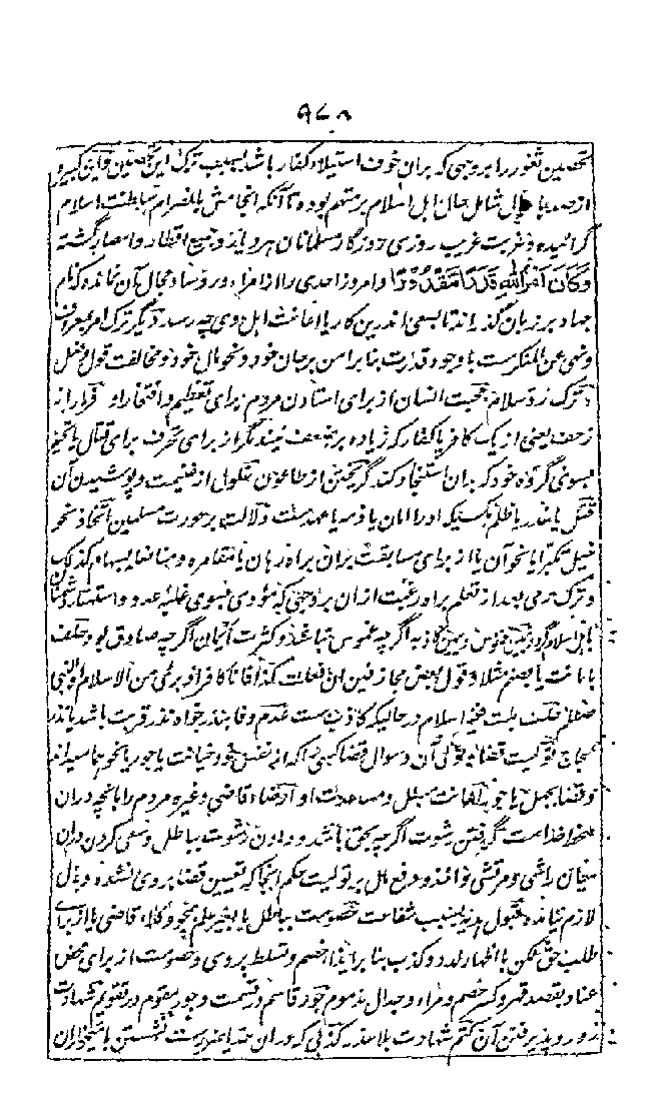 ۹۷۸
تحصین ثغور را بروجهی که بران خوف استیلاء کفار باشد بسبب ترک این تحصین و این کبیره
از صدها سال شامل حال اهل اسلام بوده تا آنکه انجامش بانصرام سلطنت اسلام
گرائیده و غربت غریب روزی روزگار مسلمانان هر دیار و جمیع اقطار و امصار گشته
وَكَانَ أَمْرُ اللّٰهِ قَدَرًا مَّقْدُوْرًا و امروز احدی را از امراء و رؤساء مجال آن نمانده که نام
جهاد بر زبان گذراند تا بسعی اندرین کار یا اعانت اهل وی چه رسد دیگر ترک امر بمعروف
و نهی عن المنکرست با وجود قدرت بنا بر امن بر جان خود و نحو مال خود و مخالفت قول و فعل
و ترک رد سلام محبت انسان از برای استادن مردم برای تعظیم و افتخار او فرار از
زحف یعنی از یک کافر یا کفار که زیاده بر ضعف نیند مگر از برای تحرف برای قتال یا تحیز
بسوی گروه خود که بدان استنجاد کند گریختن از طاعون غلول از غنیمت و پوشیدن آن
قتل یا غدر یا ظلم کسیکه او را امان یا ذمه یا عهدست دلالت بر عورت مسلمین اتخاذ نحو
خیل تکبرا یا نحو آن یا از برای مسابقت بران براه رهان یا مقامره و مناضله بسهام کذلک
و ترک رمی بعد از تعلم براه رغبت ازان بروجهی که مؤدی بسوی غلبه عدو و استهتار
باهل اسلام گردد یمین غموس و یمین کاذبه اگرچه غموس نباشد و کثرت ایمان اگرچه صادق بود حلف
بامانت یا بصنم مثلا و قول بعض مجازفین ان فعلت کذا فانا کافر او بریء من الاسلام او النبی
حلف بملت غیر اسلام در حالیکه کاذب ست عدم وفا بنذر خواه نذر قربت باشد یا نذر
لجاج تولیت قضاء و تولی آن و سوال قضا کسی را که از نفس خود خیانت یا جور یا نحو هما میداند
و قضا بجهل یا جور اعانت مبطل و مساعدت او ارضاء قاضی و غیره مردم را بانچه دران
سخط خداست گرفتن رشوت اگرچه بحق باشد و دادن رشوت بباطل و سعی کردن دران
میان راشی و مرتشی و اخذ و دفع مال بر تولیت حکم اینجا که تعیین قضا بر وی نشده و بذل
لازم نیامده قبول هدیه بسبب شفاعت خصومت بباطل یا بغیر علم همچو وکلاء قاضی یا از برای
طلب حق لکن با اظهار لدد و کذب بنا بر ایذاء خصم و تسلط بر وی و خصومت از برای محض
عناد بقصد قهر و کسر خصم و مراء و جدال مذموم جور قاسم در قسمت و جور مقوم در تقویم شهادت
زور و پذیرفتن آن کتم شهادت بلا عذر کذبی که دران حد یا ضررست نشستن با میخواران